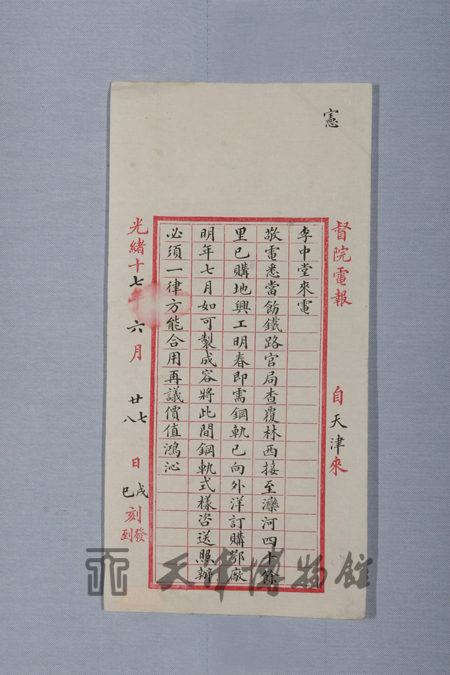 憲
督院電報 自天津來
李中堂來電
敬電悉當飭鐵路官局查覆林西接至灤河四十餘
里已購地興工明春即需鋼軌已向外洋訂購鄂廠
明年七月如可製成容將此間鋼軌式樣咨送照辦
必須一律方能合用再議價值鴻沁
光緒十七年 六月 廿七 八 日 戌 巳 刻 發 到
天津博物館